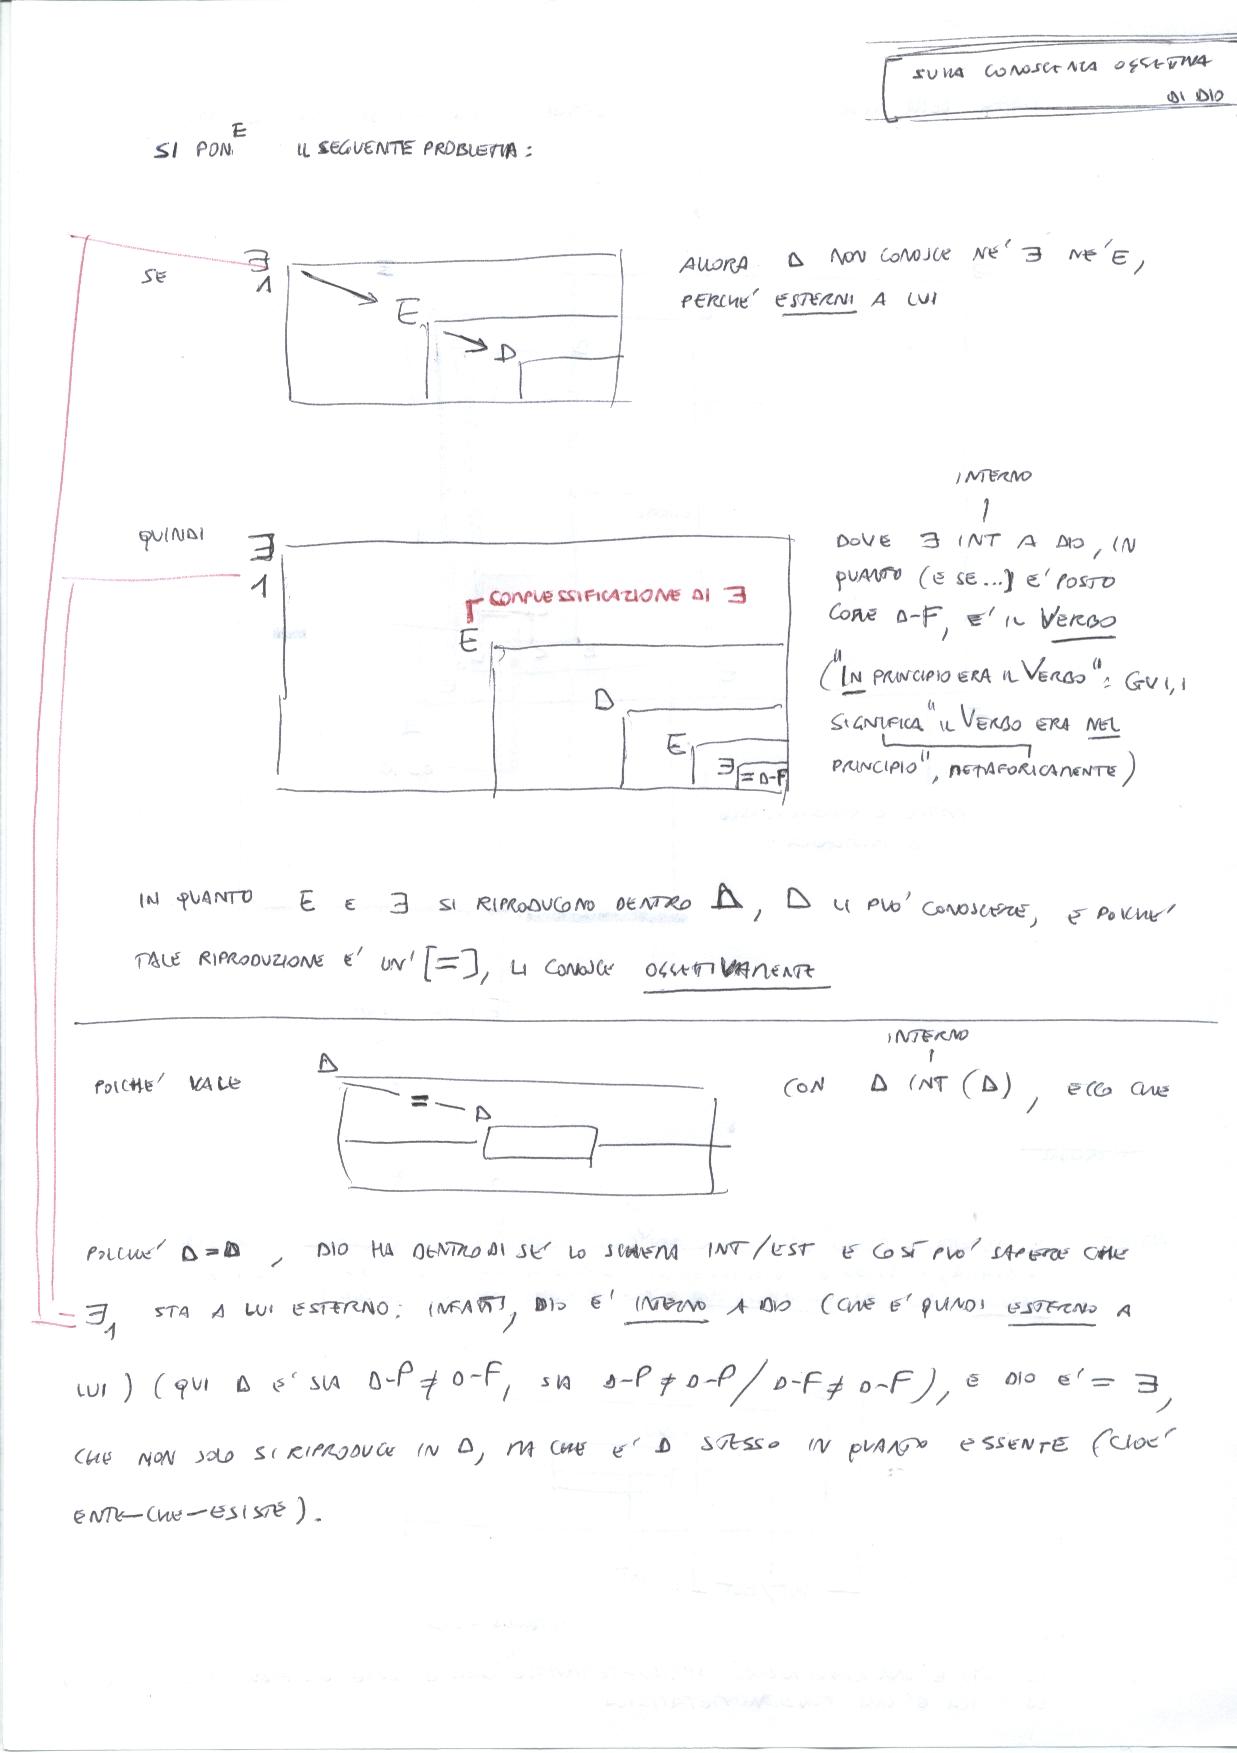 SULLA CONOSCENZA OGGETTIVA
DI DIO
SI PONE IL SEGUENTE PROBLEMA:
SE
∃
1
E
D
ALLORA D NON CONOSCE NE' ∃ NE' E,
PERCHE' ESTERNI A LUI
QUINDI
∃
1
COMPLESSIFICAZIONE DI ∃
E
D
E
∃ = D-F
INTERNO
DOVE ∃ INT A DIO, IN
QUANTO (E SE...) E' POSTO
COME D-F, E' IL VERBO
("IN PRINCIPIO ERA IL VERBO": GV 1,1
SIGNIFICA "IL VERBO ERA NEL
PRINCIPIO", METAFORICAMENTE)
IN QUANTO E E ∃ SI RIPRODUCONO DENTRO D, D LI PUO' CONOSCERE, E POICHE'
TALE RIPRODUZIONE E' UN'[=], LI CONOSCE OGGETTIVAMENTE
POICHE' VALE
D
=
D
INTERNO
CON D INT (D), ECCO CHE
POICHE' D=D, DIO HA DENTRO DI SE' LO SCHEMA INT/EST E COSÌ PUO' SAPERE CHE
∃1 STA A LUI ESTERNO: INFATTI, DIO E' INTERNO A DIO (CHE E' QUINDI ESTERNO A
LUI) (QUI D E' SIA D-P ≠ D-F, SIA D-P ≠ D-P / D-F ≠ D-F), E DIO E' = ∃,
CHE NON SOLO SI RIPRODUCE IN D, MA CHE E' D STESSO IN QUANTO ESSENTE (CIOE'
ENTE-CHE-ESISTE).